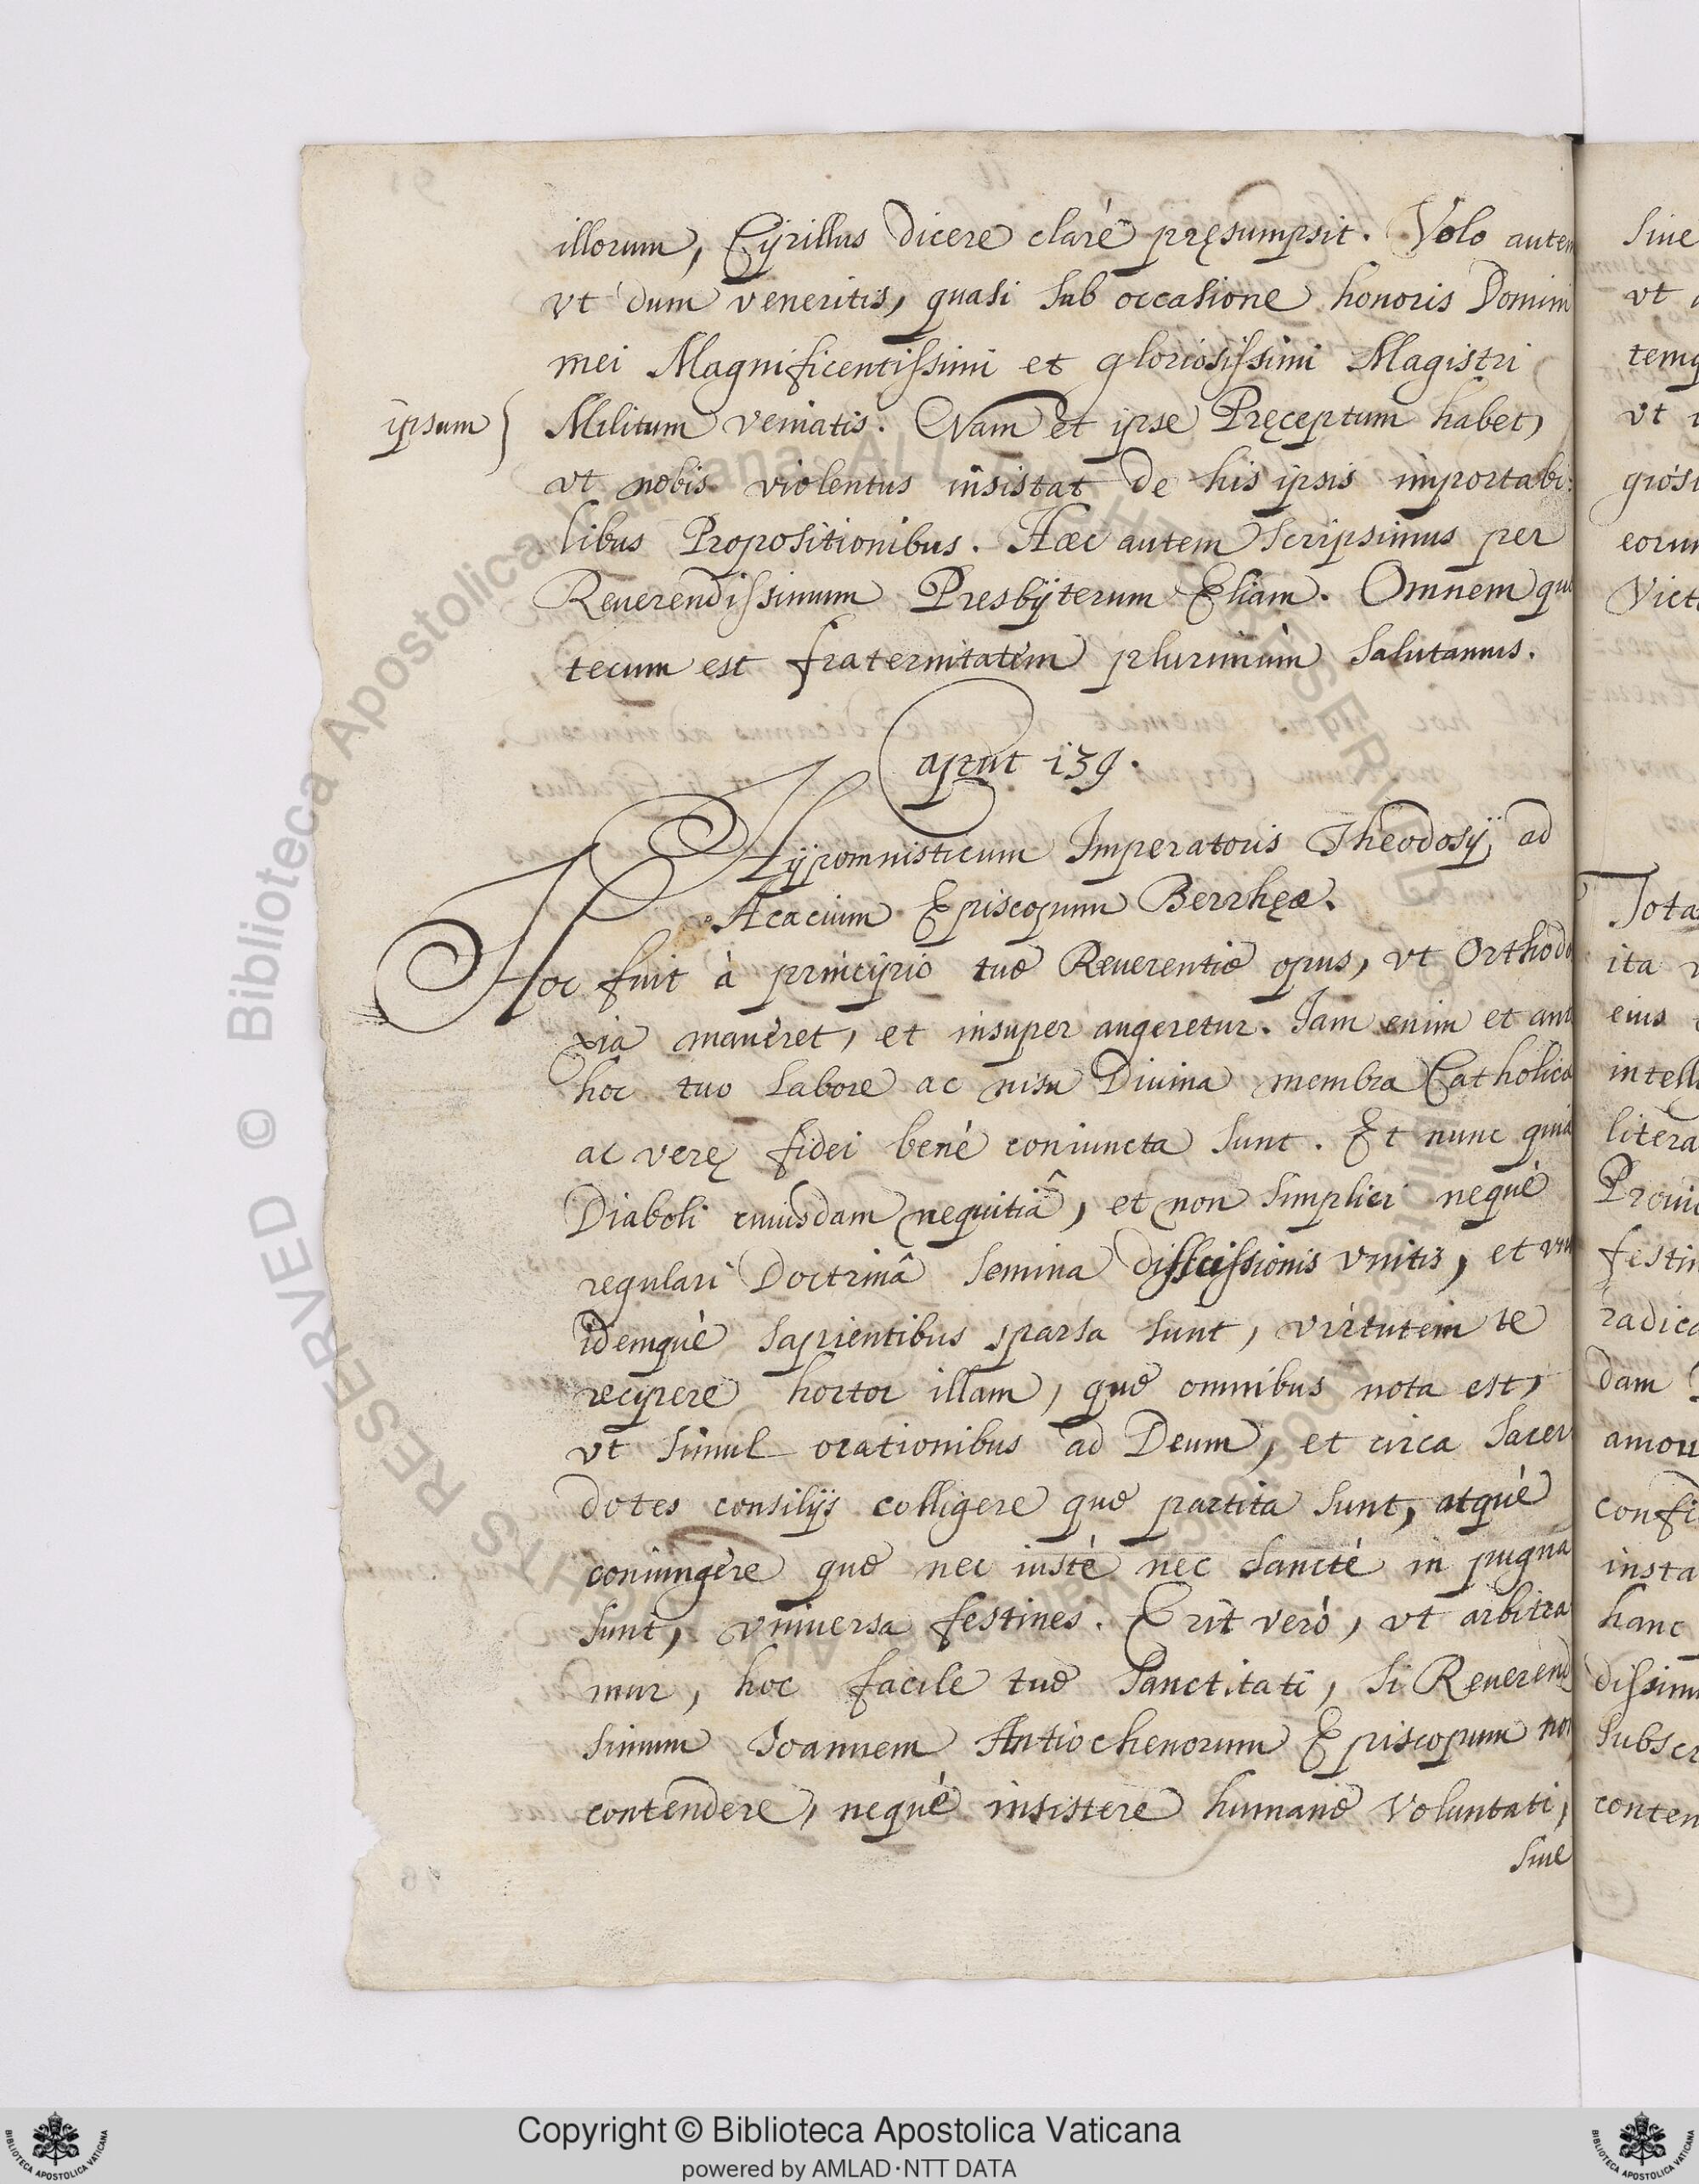 illorum, Cyrillus dicere clarè pręsumpsit. Volo autem
vt dum veneritis, quasi sub occasione honoris Domini
mei Magnificentissimi et gloriosissimi Magistri
ipsum } Militum veniatis. Nam et ipse Pręceptum habet,
vt nobis violentus insistat de his ipsis importabi:
libus Propositionibus. Hæc autem scripsimus per
Reuerendissimum Presbÿterum Eliam. Omnem que
tecum est fraternitatem plurimùm salutamus.
Caput 139.
Hÿpomnisticum Imperatoris Theodosÿ ad
Acacium Episcopum Berrhęæ.
Hoc fuit à principio tuæ Reuerentiæ opus, vt Orthodo
xia maneret, et insuper augeretur. Iam enim et ante
hoc tuo labore ac nisu Diuina membra Catholicæ
ac verę fidei benè coniuncta sunt. Et nunc quia
Diaboli cuiusdam nequitiâ, et non simplici nequè
regulari Doctrinâ semina disscissionis vnitis, et vnu
idemquè sapientibus sparsa sunt, virtutem te
recipere hortor illam, quæ omnibus nota est,
vt simul orationibus ad Deum, et circa Sacer
dotes consilijs colligere quæ partita sunt, atquè
coniungere quæ nec iustè nec sanctè in pugna
sunt, vniuersa festines. Erit verò, vt arbitra
mur, hoc facile tuæ Sanctitati, si Reuerendis
simum Ioannem Antiochenorum Episcopum non
contendere, nequè insistere humanæ voluntati,
siue
siue
vt
ita
eius
hanc
dam
Copyright © Biblioteca Apostolica Vaticana
powered by AMLAD·NTT DATA
BIBLIOTECA APOSTOLICA VATICANA
BIBLIOTECA APOSTOLICA VATICANA
© Biblioteca Apostolica Vaticana ALL RIGHTS RESERVED